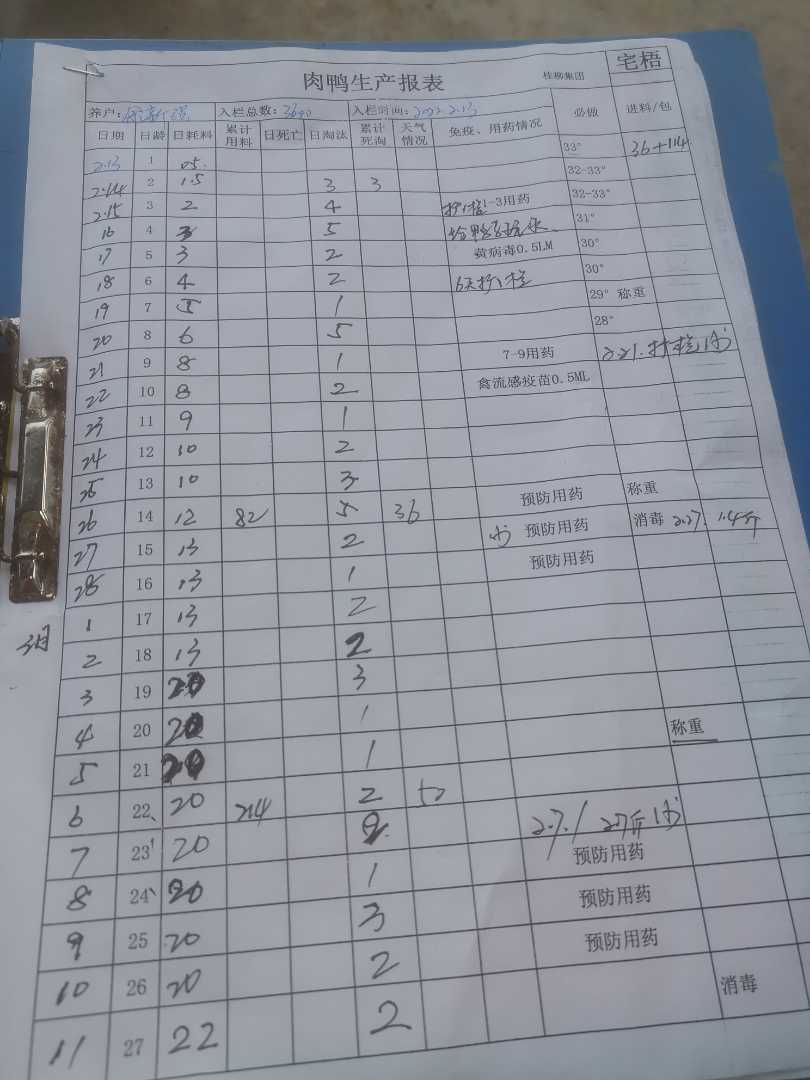 宅梧
肉鸭生产报表 桂柳集团
养户: 入栏总数:3600 入栏时间:2022.2.13 必做 进料/包
日期 日龄 日耗料 累计用料 日死亡 日淘汰 累计死淘 天气情况 免疫、用药情况
2.13 1 0.5 33° 36+114
2.14 2 1.5 3 3 32-33°
2.15 3 2 4 1-3用药 32-33°
16 4 3 5 31°
17 5 3 2 黄病毒0.5LM 30°
18 6 4 2 30°
19 7 5 1 29° 称重
20 8 6 5 28°
21 9 8 1 7-9用药 2.21.
22 10 8 2 禽流感疫苗0.5ML
23 11 9 1
24 12 10 2
25 13 10 3 称重
26 14 12 82 5 36 预防用药
27 15 13 2 预防用药 消毒 2.27. 1.4斤
28 16 13 1 预防用药
3月 1 17 13 2
2 18 13 2
3 19 20 3
4 20 20 1
5 21 20 1 称重
6 22 20 214 2 50
7 23 20 2 2.7斤
8 24 20 1 预防用药
9 25 20 3 预防用药
10 26 20 2 预防用药
11 27 22 2 消毒